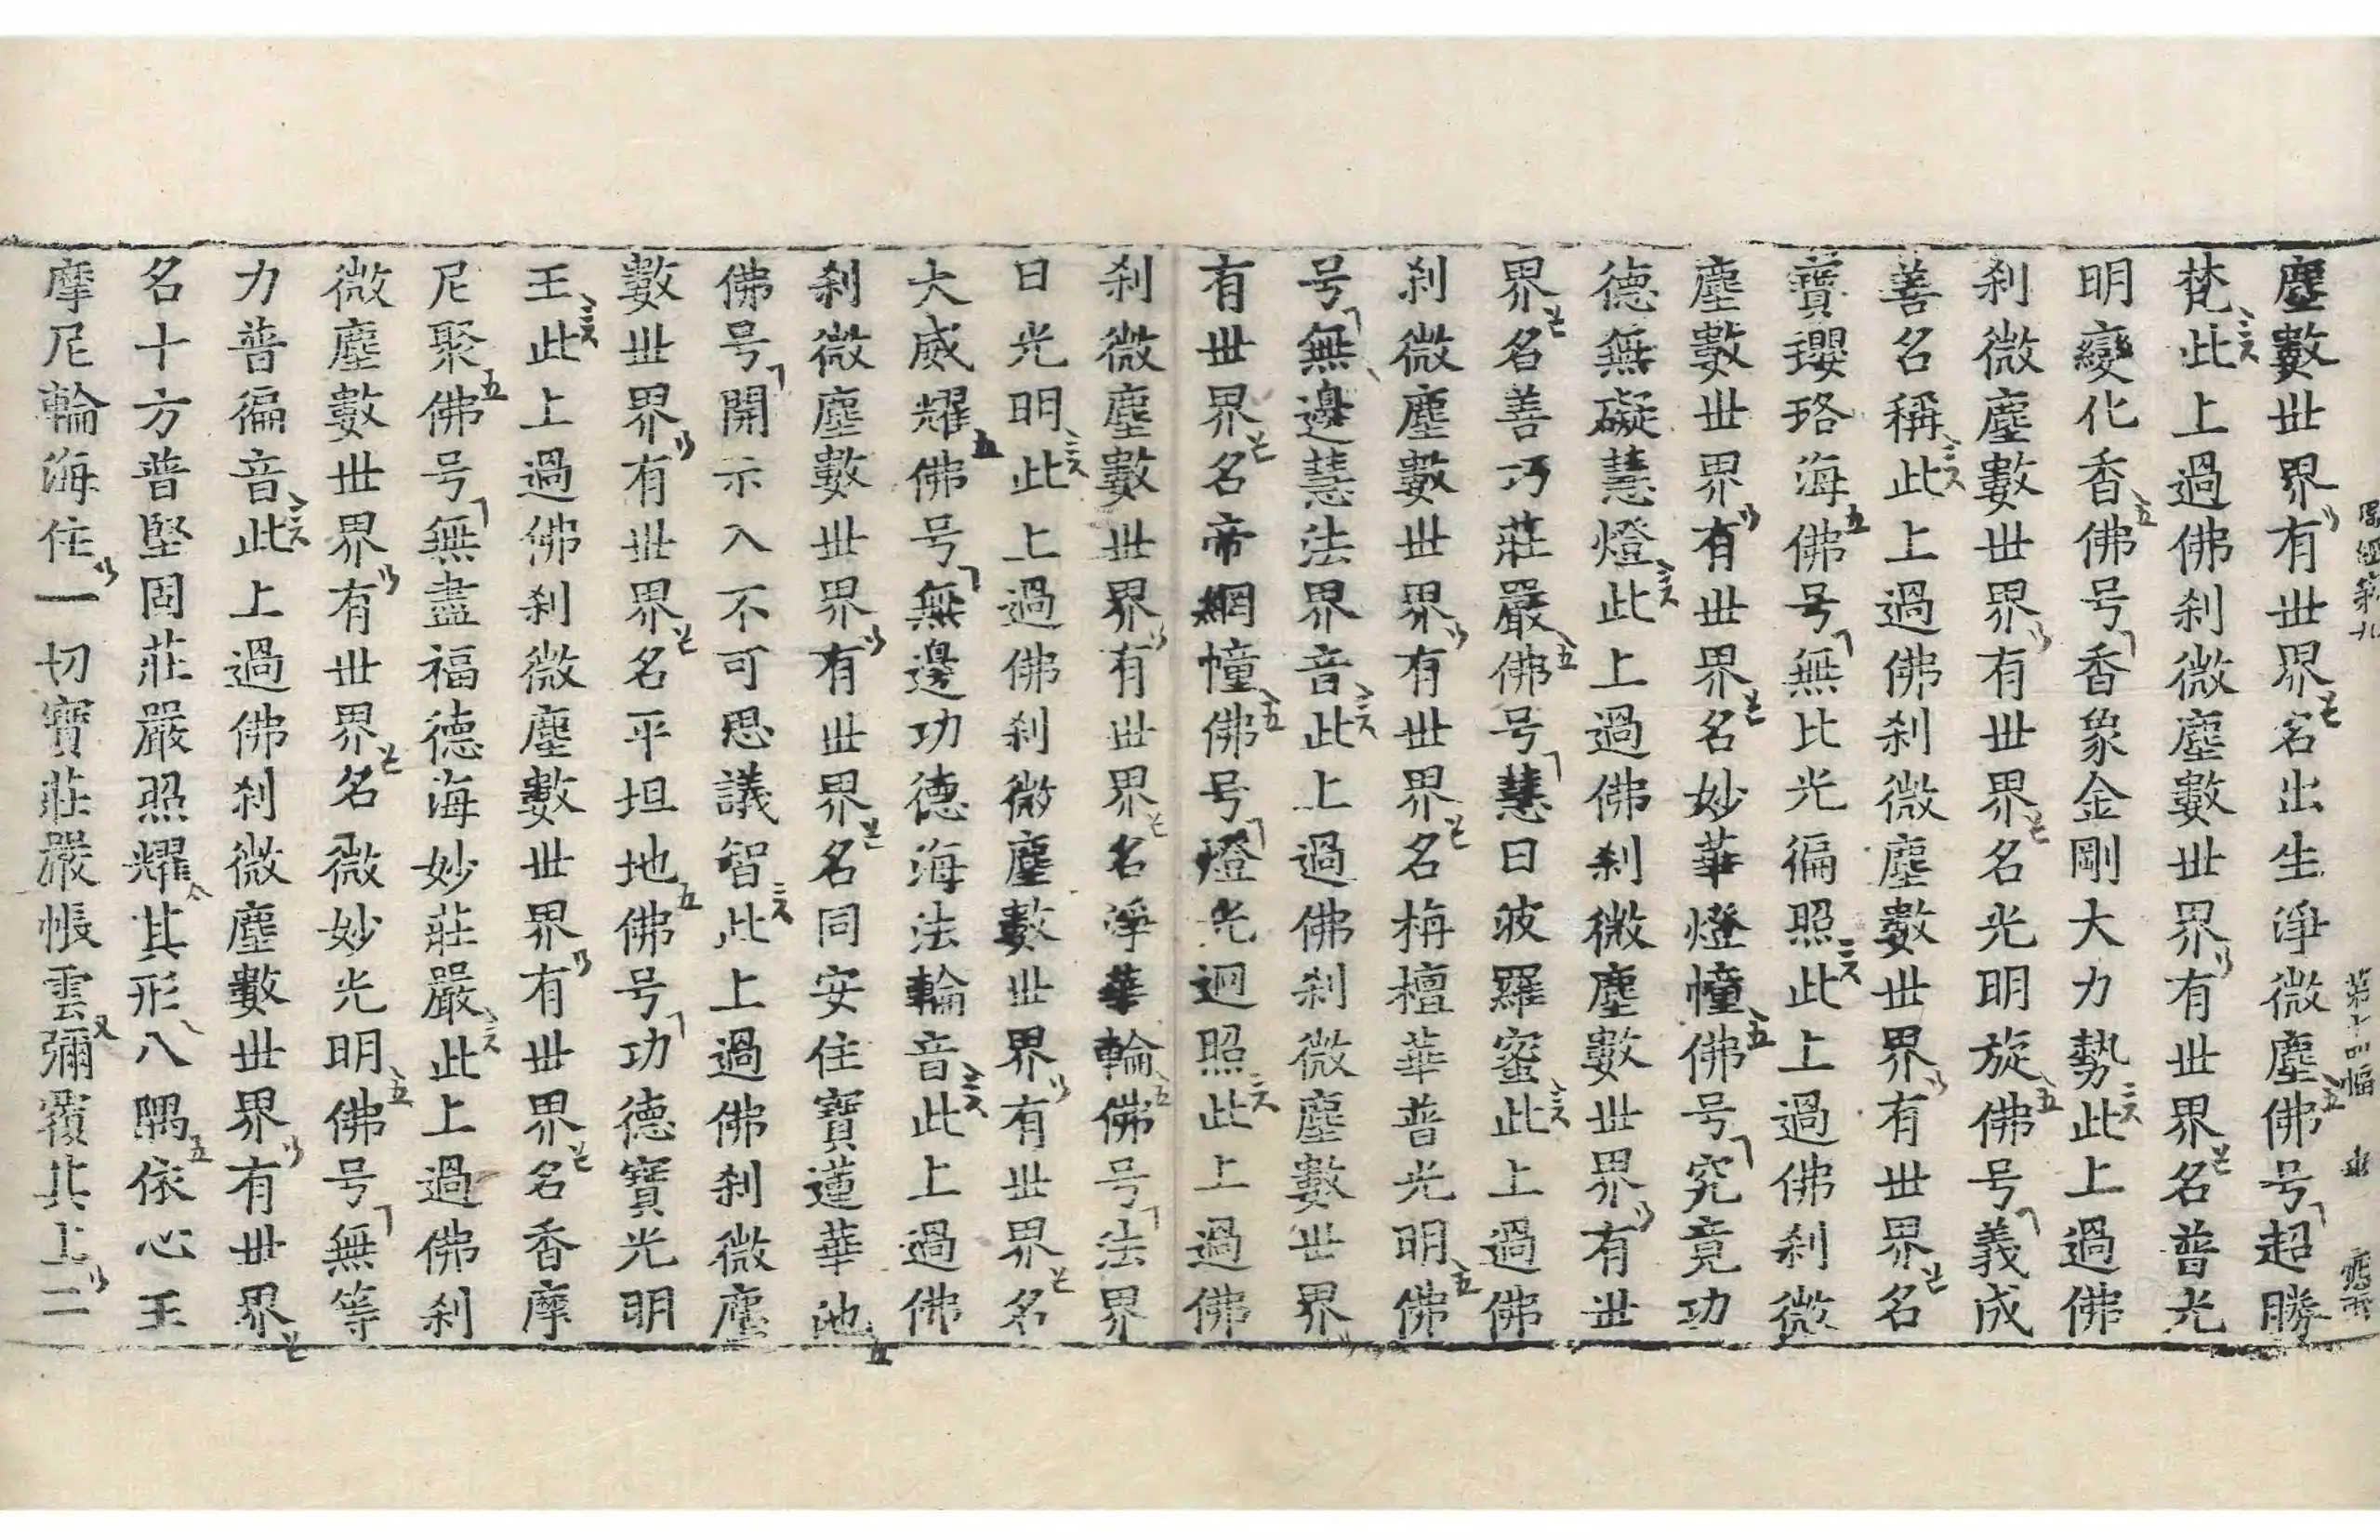 周經第九 第十四幅
塵數世界有世界名出生淨微塵佛号超勝
梵此上過佛刹微塵數世界有世界名普光
明變化香佛号香象金剛大力勢此上過佛
刹微塵數世界有世界名光明旋佛号義成
善名稱此上過佛刹微塵數世界有世界名
寶瓔珞海佛号無比光徧照此上過佛刹微
塵數世界有世界名妙華燈幢佛号究竟功
德無礙慧燈此上過佛刹微塵數世界有世
界名善巧莊嚴佛号慧日波羅蜜此上過佛
刹微塵數世界有世界名栴檀華普光明佛
号無邊慧法界音此上過佛刹微塵數世界
有世界名帝網幢佛号燈光迥照此上過佛
刹微塵數世界有世界名淨華輪佛号法界
日光明此上過佛刹微塵數世界有世界名
大威耀佛号無邊功德海法輪音此上過佛
刹微塵數世界有世界名同安住寶蓮華池
佛号開示入不可思議智此上過佛刹微塵
數世界有世界名平坦地佛号功德寶光明
王此上過佛刹微塵數世界有世界名香摩
尼聚佛号無盡福德海妙莊嚴此上過佛刹
微塵數世界有世界名微妙光明佛号無等
力普徧音此上過佛刹微塵數世界有世界
名十方普堅固莊嚴照耀其形八隅依心王
摩尼輪海住一切寶莊嚴帳雲彌覆其上二